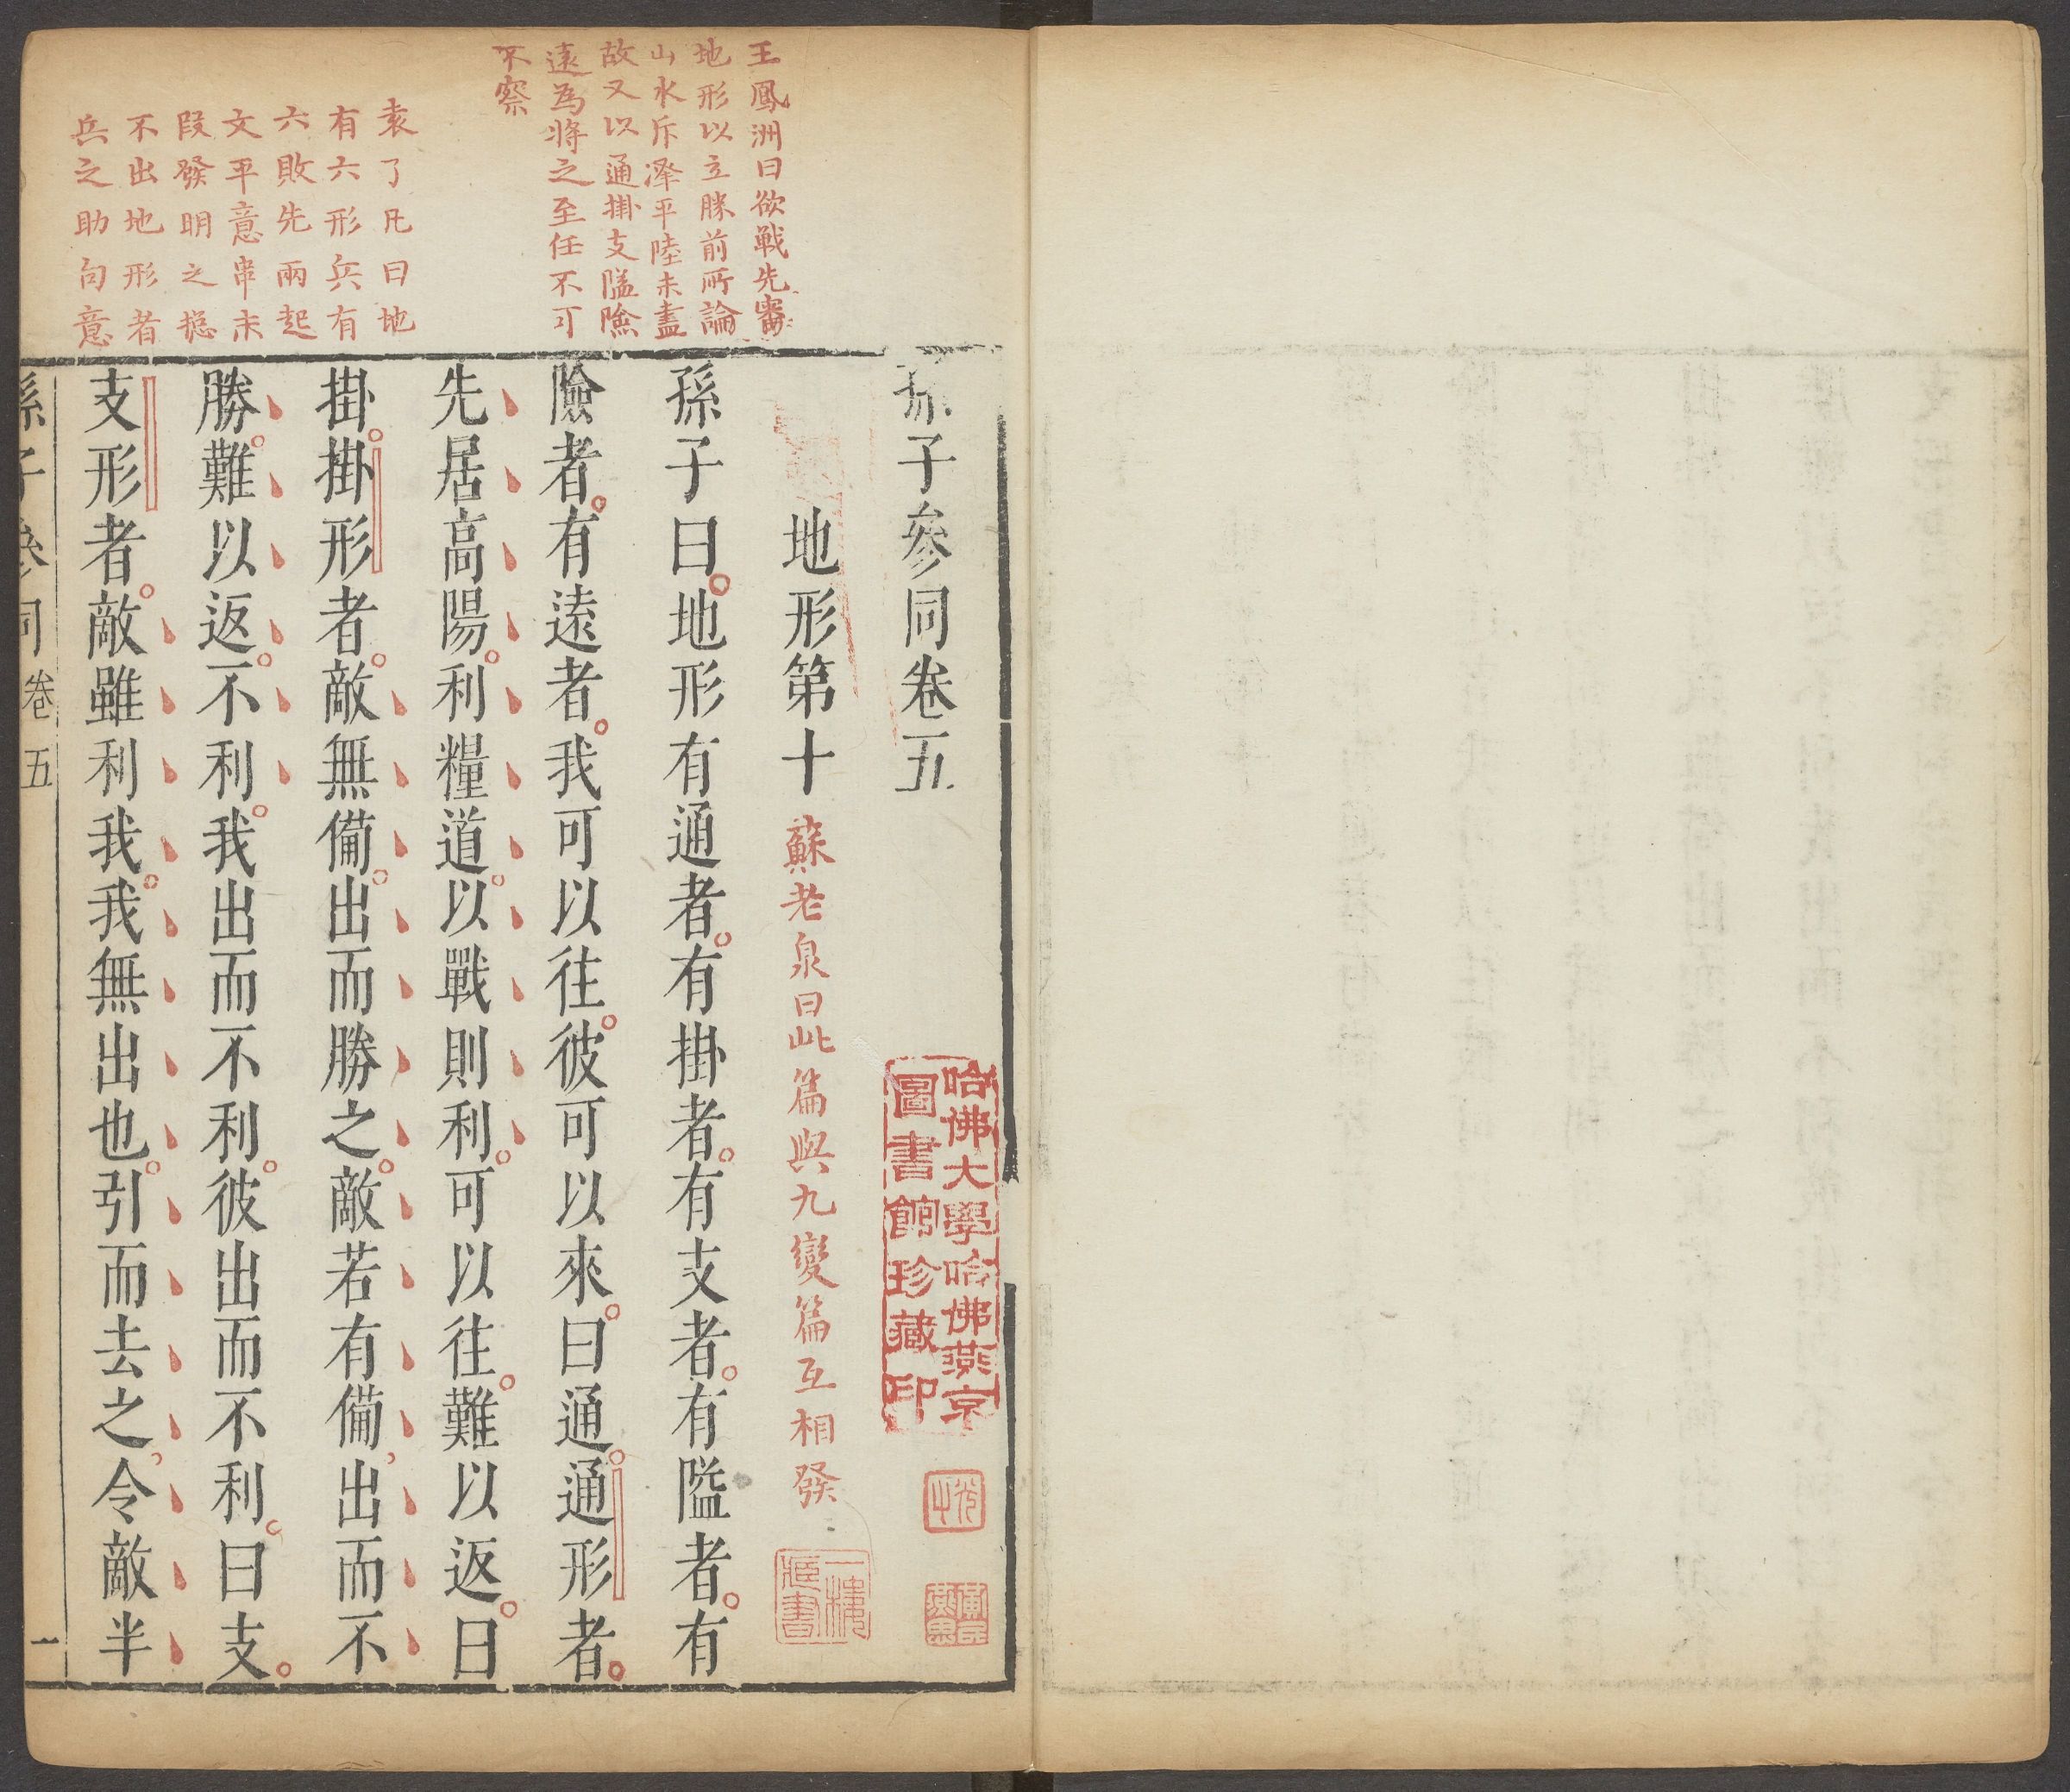 孫子參同卷五
地形第十 蘇老泉曰此篇與九變篇互相發
孫子曰地形有通者有掛者有支者有隘者有
險者有遠者我可以往彼可以來曰通通形者
先居高陽利糧道以戰則利可以往難以返曰
掛掛形者敵無備出而勝之敵若有備出而不
勝難以返不利我出而不利彼出而不利曰支
支形者敵雖利我我無出也引而去之令敵半
孫子參同 卷五 一
王鳳洲曰欲戰先審
地形以立勝前所論
山水斥澤平陸未盡
故又以通掛支隘險
遠為將之至任不可
不察
袁了凡曰地
有六形兵有
六敗先兩起
文平意串末
段發明之總
不出地形者
兵之助句意
哈佛大學哈佛燕京
圖書館珍藏印